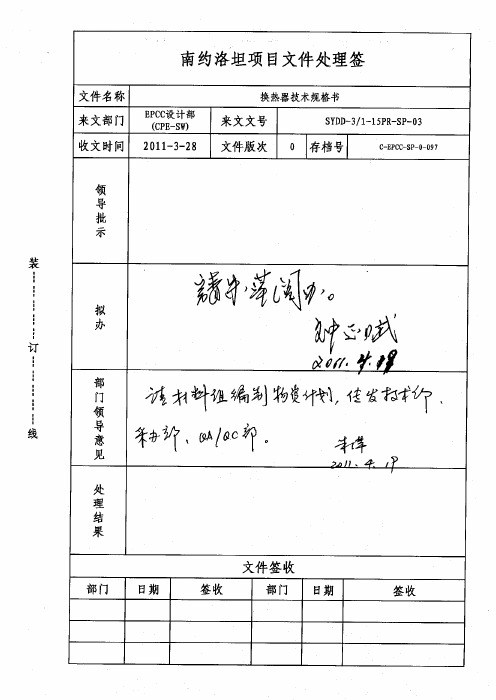 南约洛坦项目文件处理签
文件名称 换热器技术规格书
来文部门 EPCC设计部 (CPE-SW) 来文文号 SYDD-3/1-15PR-SP-03
收文时间 2011-3-28 文件版次 0 存档号 C-EPCC-SP-0-097
领导批示
拟办
请 萍阅办。
2011.4.19
部门领导意见
请材料组编制物资计划，传发技术部、
采办部、QA/QC部。
2011.4.19
处理结果
文件签收
部门 日期 签收 部门 日期 签收
装
订
线